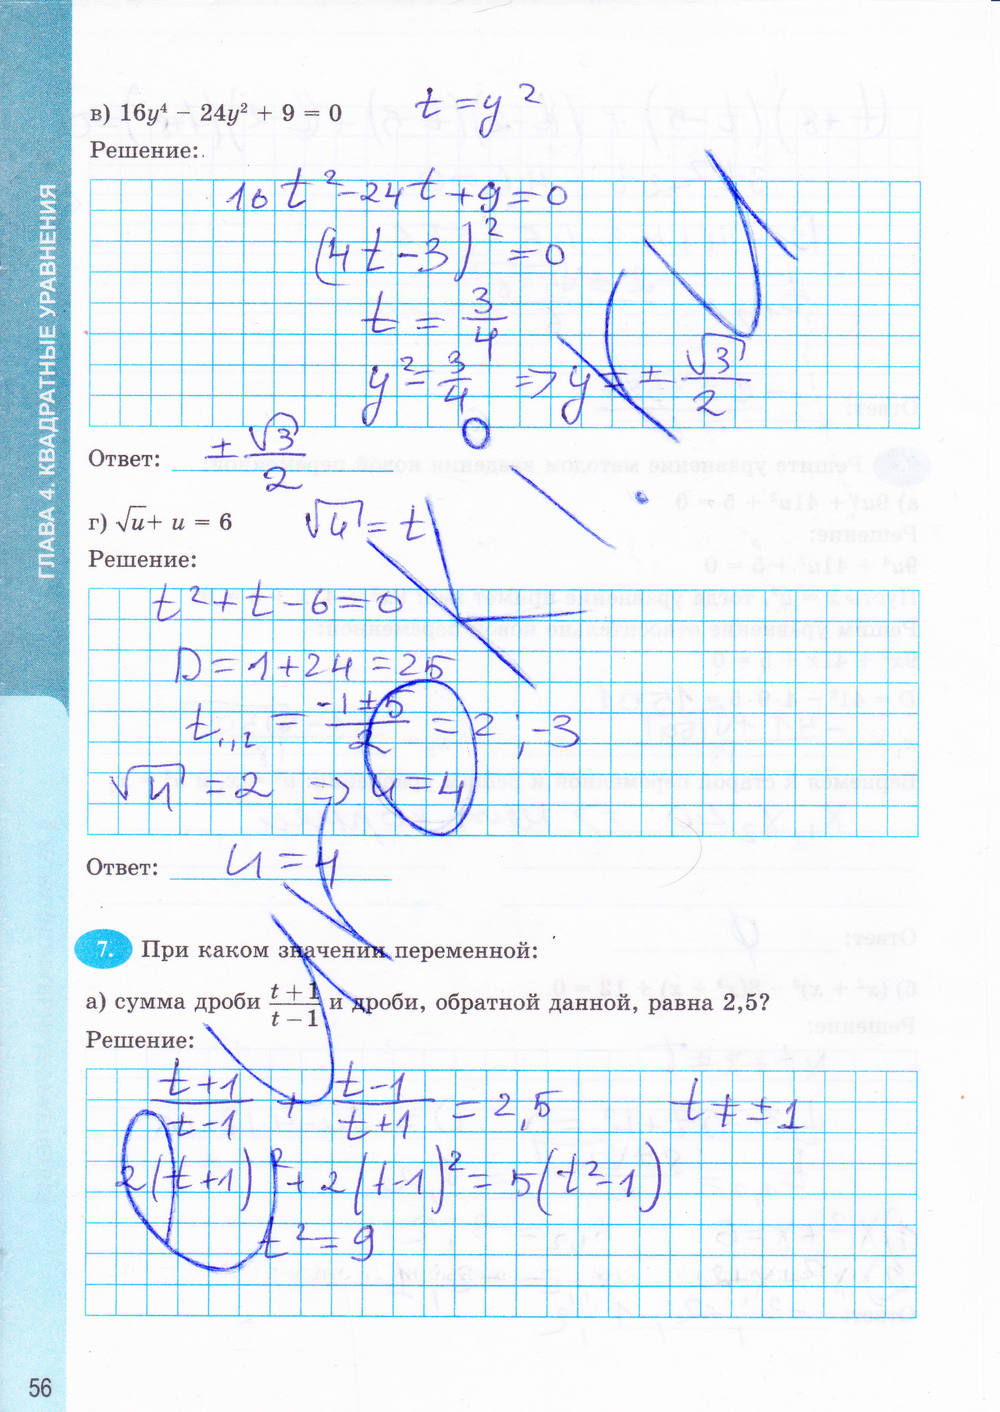 ГЛАВА 4. КВАДРАТНЫЕ УРАВНЕНИЯ
в) 16y⁴ − 24y² + 9 = 0 t = y²
Решение:
16t² − 24t + 9 = 0
(4t − 3)² = 0
t = 3/4
y² = 3/4 => y = ± √3/2
Ответ: ± √3/2
г) √u + u = 6 √u = t
Решение:
t² + t − 6 = 0
D = 1 + 24 = 25
t₁,₂ = (−1 ± 5)/2 = 2 ; −3
√u = 2 => u = 4
Ответ: u = 4
7. При каком значении переменной:
а) сумма дроби (t + 1)/(t − 1) и дроби, обратной данной, равна 2,5?
Решение:
(t+1)/(t−1) + (t−1)/(t+1) = 2,5 t ≠ ± 1
2(t+1)² + 2(t−1)² = 5(t²−1)
t² = 9
56